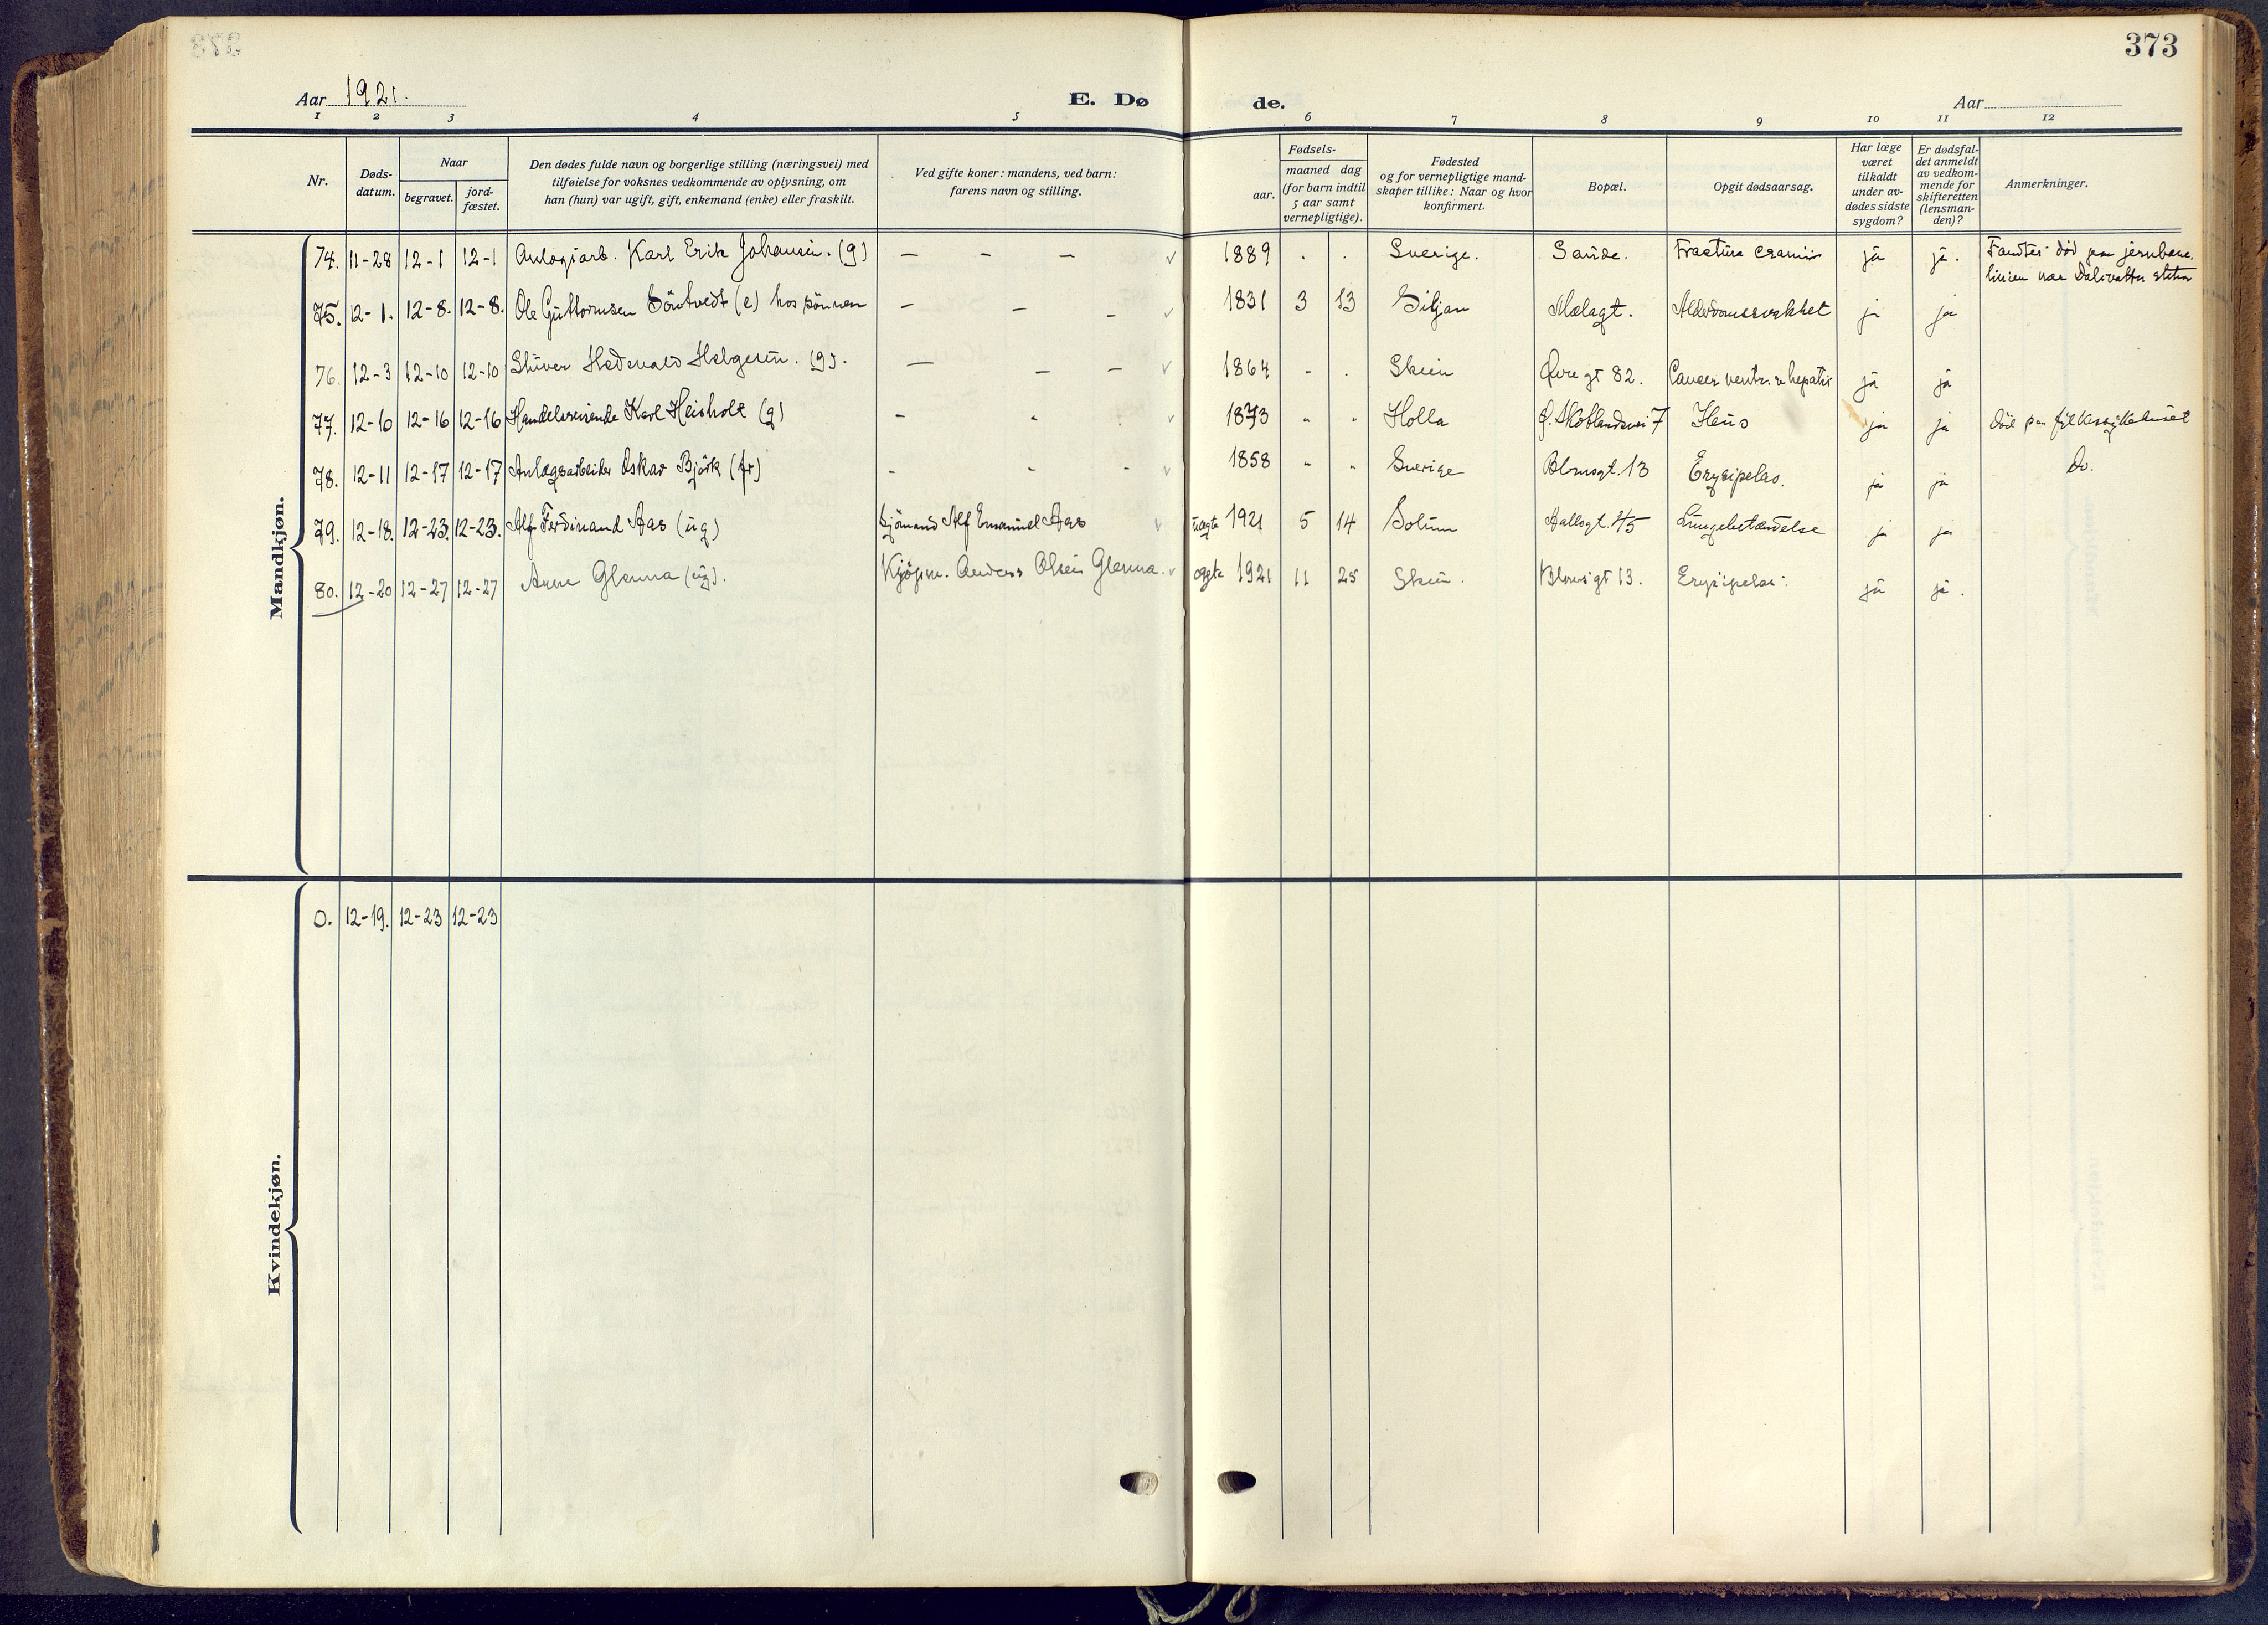 373
Aar 1921.
E. Dø de.
Aar
1 2 3 4 5 6 7 8 9 10 11 12
Nr.
Døds-
datum.
Naar
begravet.
jord-
fæstet.
Den dødes fulde navn og borgerlige stilling (næringsvei) med
tilføielse for voksnes vedkommende av oplysning, om
han (hun) var ugift, gift, enkemand (enke) eller fraskilt.
Ved gifte koner: mandens, ved barn:
farens navn og stilling.
Fødsels-
aar.
maaned dag
(for barn indtil
5 aar samt
vernepligtige).
Fødested
og for vernepligtige mand-
skaper tillike: Naar og hvor
konfirmert.
Bopæl.
Opgit dødsaarsag.
Har læge
været
tilkaldt
under av-
dødes sidste
sygdom?
Er dødsfal-
det anmeldt
av vedkom-
mende for
skifteretten
(lensman-
den)?
Anmerkninger.
Mandkjøn.
74. 11-28 12-1 12-1 Anlægsarb. Karl Erik Johansen. (g) – – – 1889 . . Sverige. Sande. Fractura cranii ja ja. Fandtes død paa jernbane
linien nær
75. 12-1. 12-8. 12-8. Ole Guttormsen (e) hos sønnen – – – 1831 3 13 Siljan Mælagt. Alderdomssvakhet ja ja
76. 12-3 12-10 12-10 Helgesen. (g). – – – 1864 - . Skien Øvre gt 82. Cancer ventr. hepatis ja ja
77. 12-10 12-16 12-16 Handelsreisende Karl Heisholt (g) - - 1873 " " Holla 7 ja ja død paa fylkessykehuset
78. 12-11 12-17 12-17 Anlægsarbeider Oskar Björk (fr) - - - 1858 " " Sverige Blomsgt. 13 Erysipelas. ja ja Do.
79. 12-18. 12-23. 12-23. Alf Ferdinand Aas (ug) Sjömand Alf Emanuel Aas uægte 1921 5 14 Solum Lungebetændelse ja ja
80. 12-20 12-27 12-27 Arne Glenna (ug). Kjøpm. Anders Olsen Glenna. ægte 1921 11 25 Skien. 13. Erysipelas. ja ja.
Kvindekjøn.
0. 12-19. 12-23 12-23